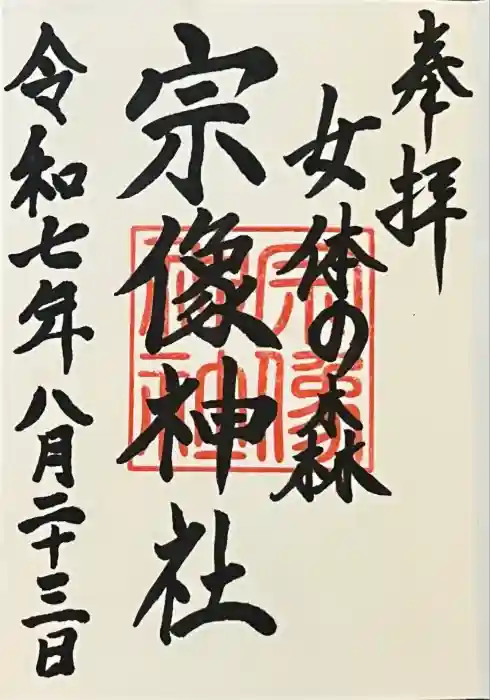 奉拝
女体の森
宗像神社
令和七年八月二十三日
宗像
神社